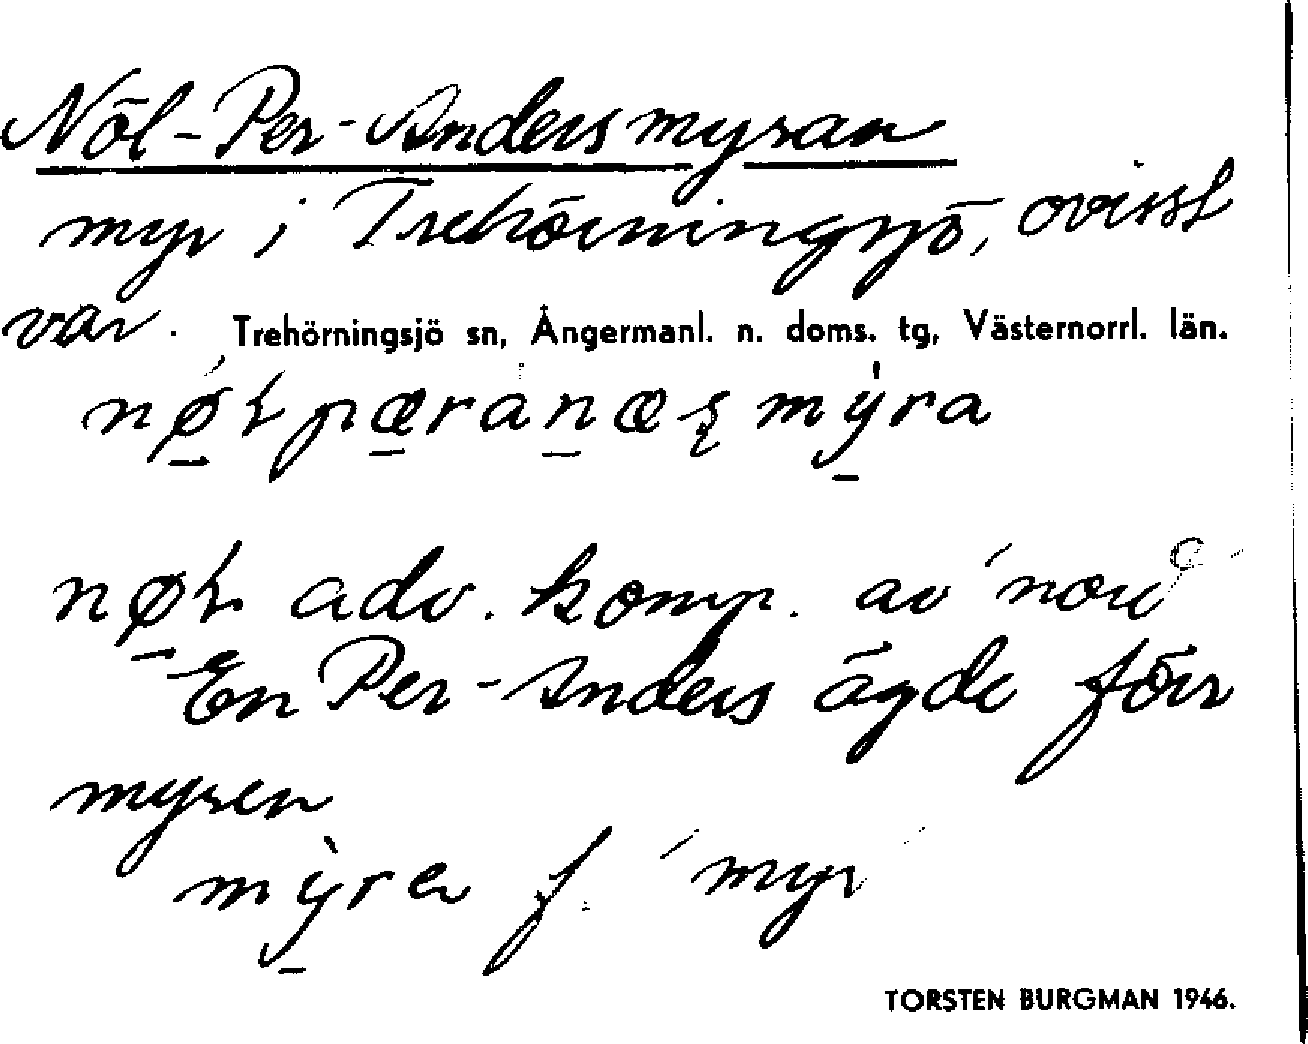 Nöl-Per-Andersmyran
myr i Trehörningsjö, ovisst
var. Trehörningsjö sn, Ångermanl. n. doms. tg, Västernorrl. län.
adv. komp. av 'nord'
En Per-Anders ägde förr
myren
f. 'myr'
TORSTEN BURGMAN 1946.